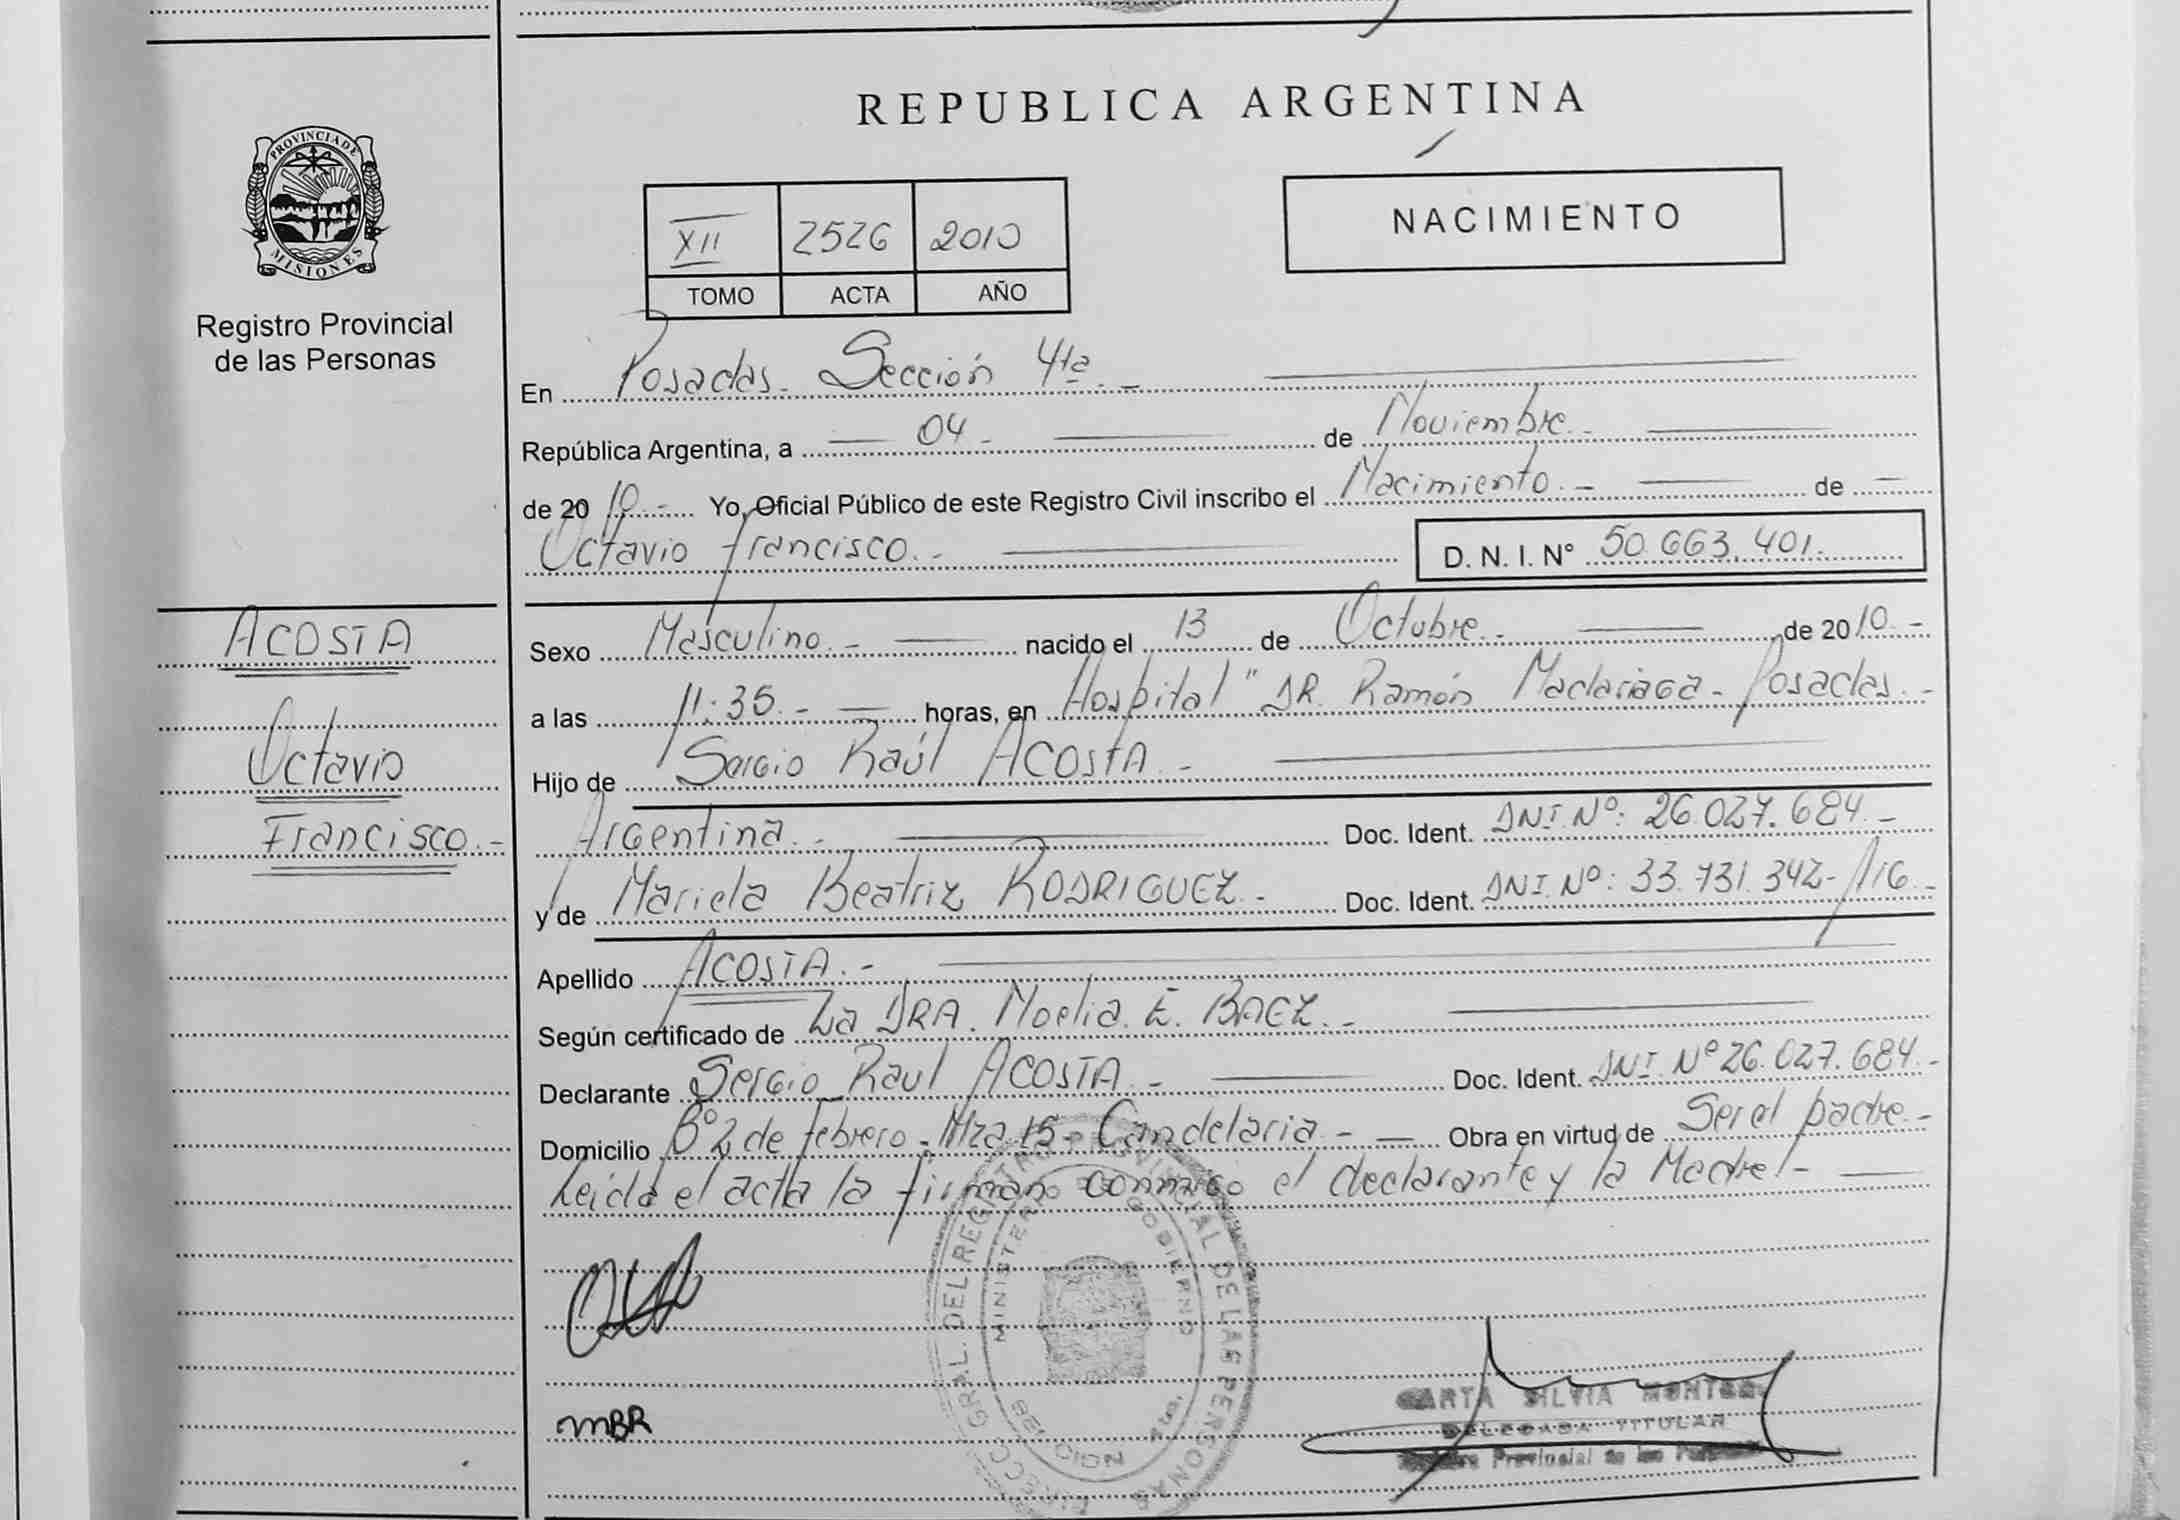 REPUBLICA ARGENTINA
PROVINCIA DE
MISIONES
Registro Provincial
de las Personas
NACIMIENTO
XII 2526 2010
TOMO ACTA AÑO
En Posadas. Sección 4ta.-
República Argentina, a 04- de Noviembre.-
de 2010.- Yo, Oficial Público de este Registro Civil inscribo el Nacimiento.- de -
Octavio Francisco.- D. N. I. N° 50.663.401.
ACOSTA
Octavio
Francisco.-
Sexo Masculino.- nacido el 13 de Octubre.- de 2010.-
a las 11:35.- horas, en Hospital "DR. Ramón Madariaga- Posadas.-
Hijo de Sergio Raúl ACOSTA.-
Argentina.- Doc. Ident. DNI. Nº: 26.027.684.-
y de Mariela Beatriz RODRIGUEZ.- Doc. Ident. DNI. Nº: 33.731.342- Arg.-
Apellido ACOSTA.-
Según certificado de La DRA. Noelia. E. BAEZ.-
Declarante Sergio Raul ACOSTA.- Doc. Ident. DNI. Nº 26.027.684.-
Domicilio Bº 2 de febrero- Mza. 15- Candelaria.- Obra en virtud de Ser el padre.-
Leída el acta la firman conmigo el declarante y la Madre!-
MINISTERIO DE GOBIERNO
DEL REGISTRO PROVINCIAL DE LAS PERSONAS
MBR
SILVIA
DELEGADA TITULAR
Provincial de las